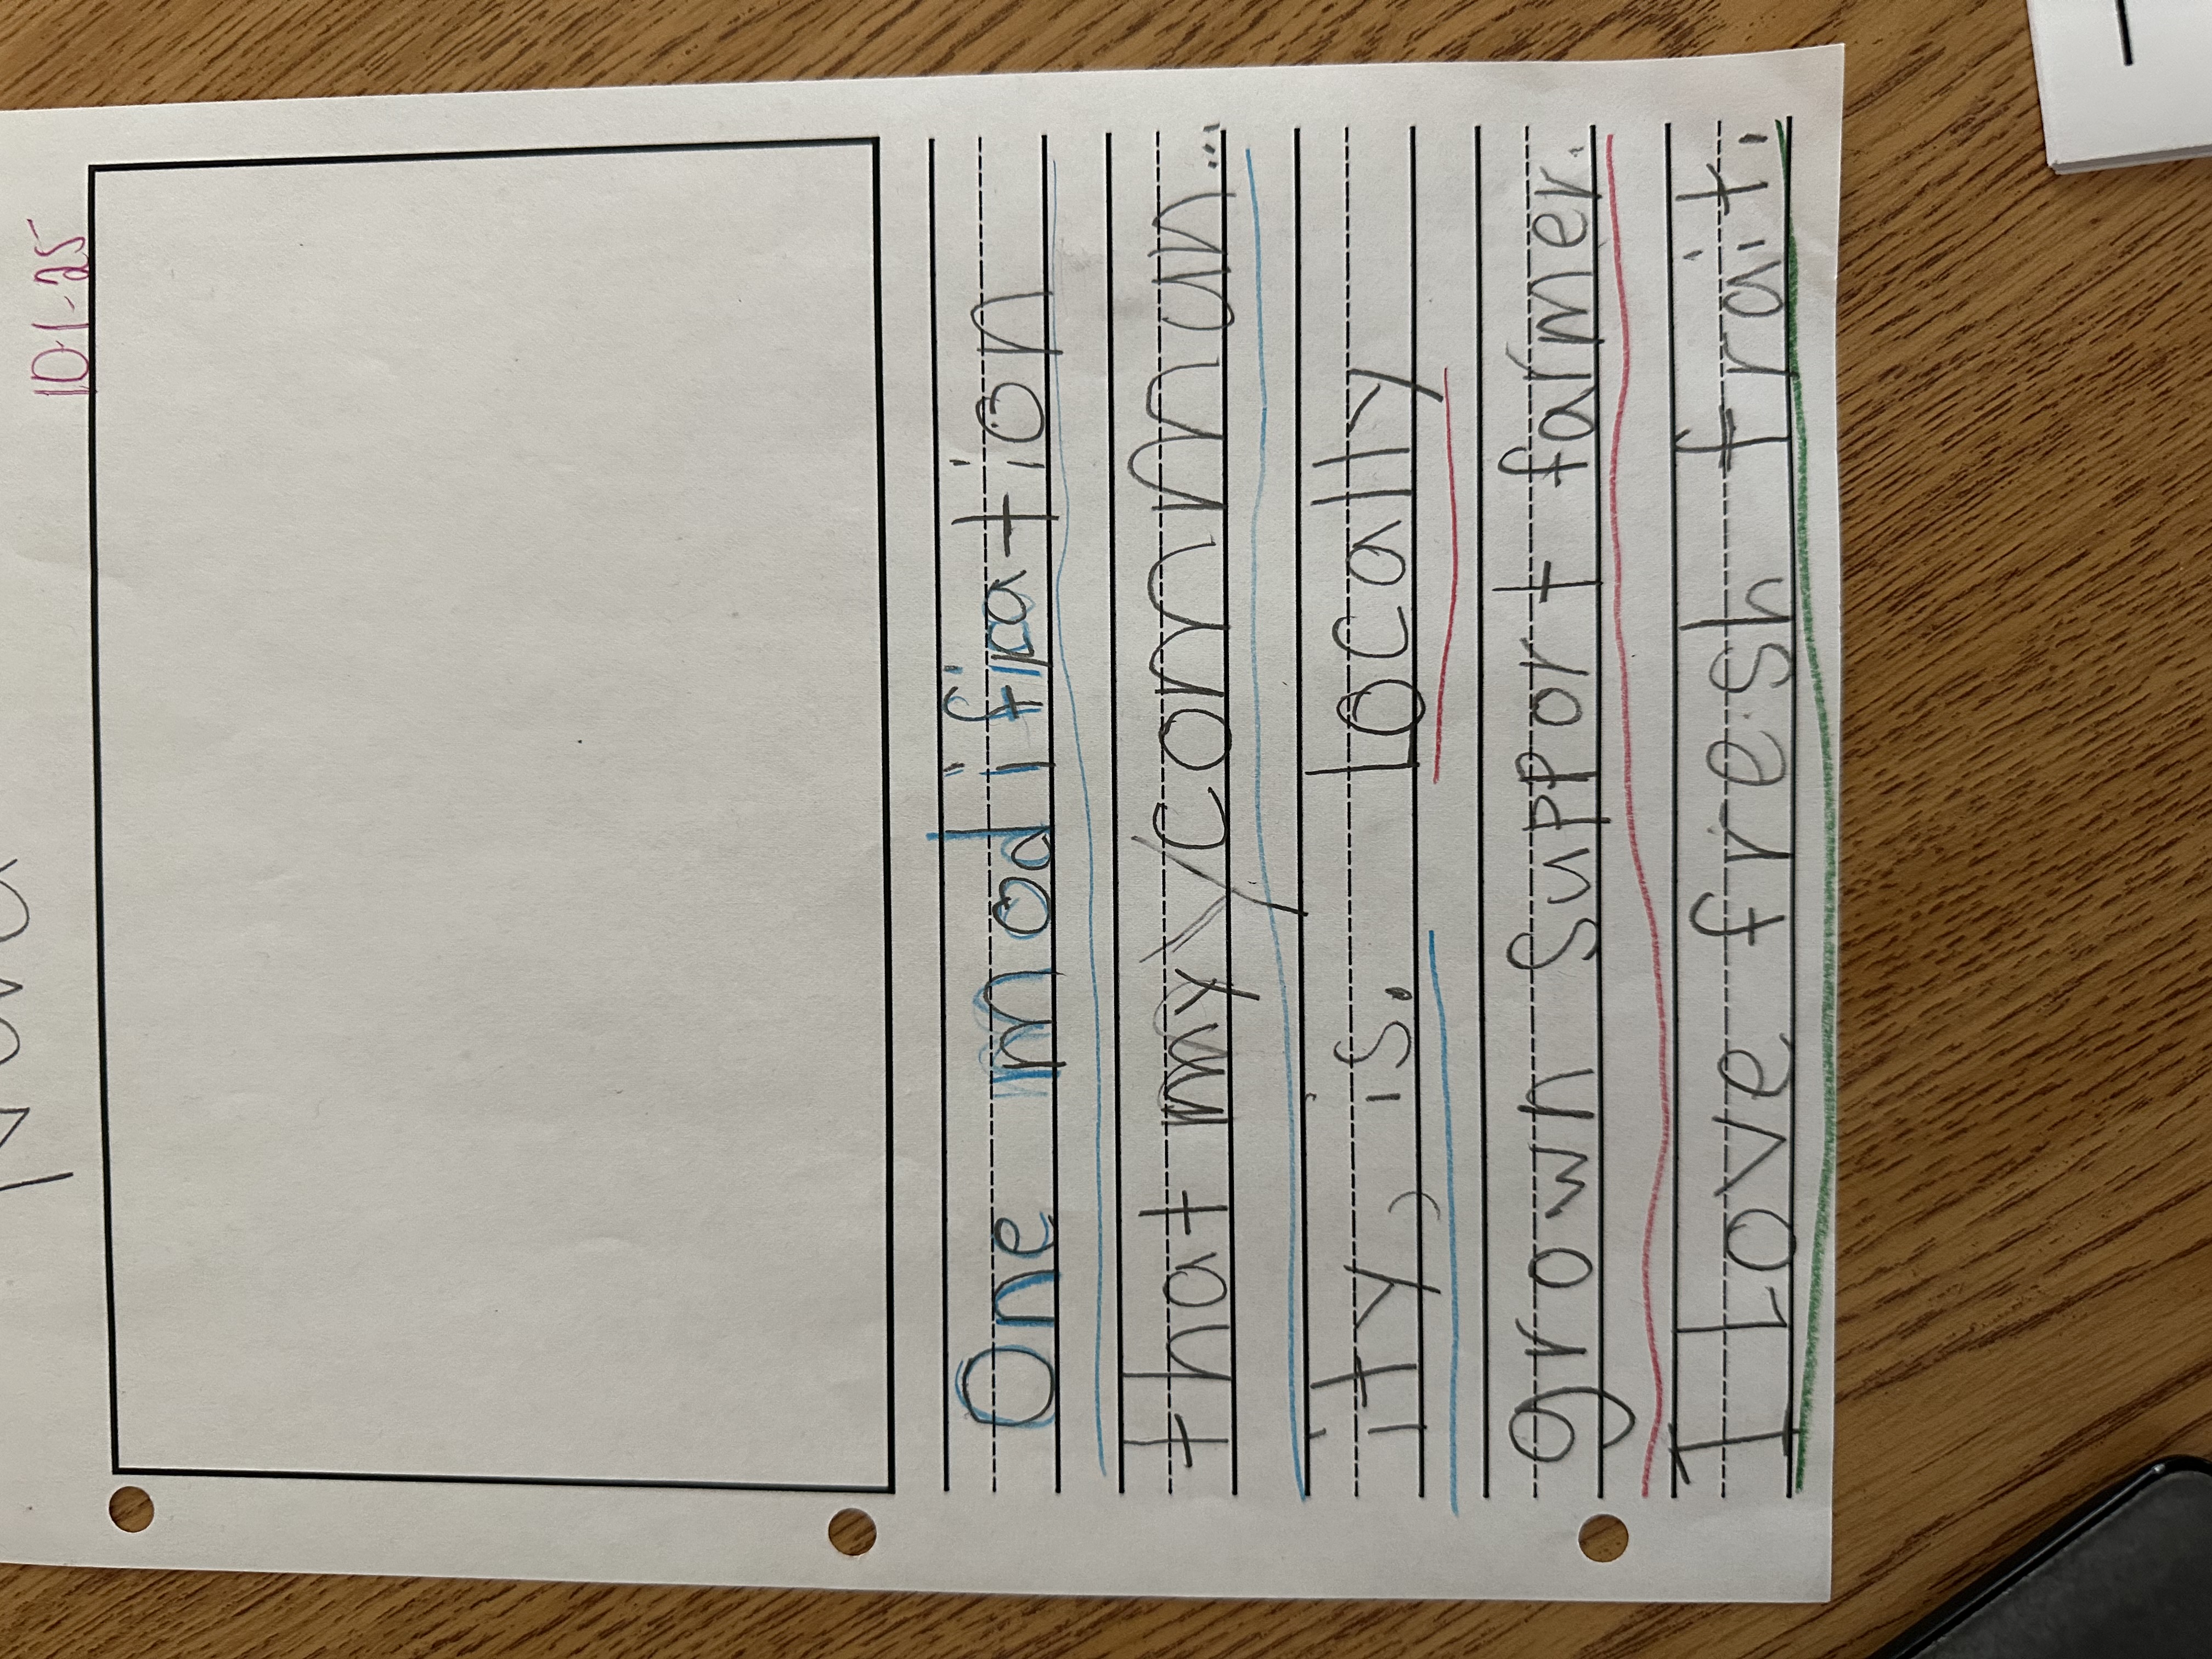 10-1-25
One modification
that my commun...
ity, is. Locally
grown support farmer.
I Love fresh frait.